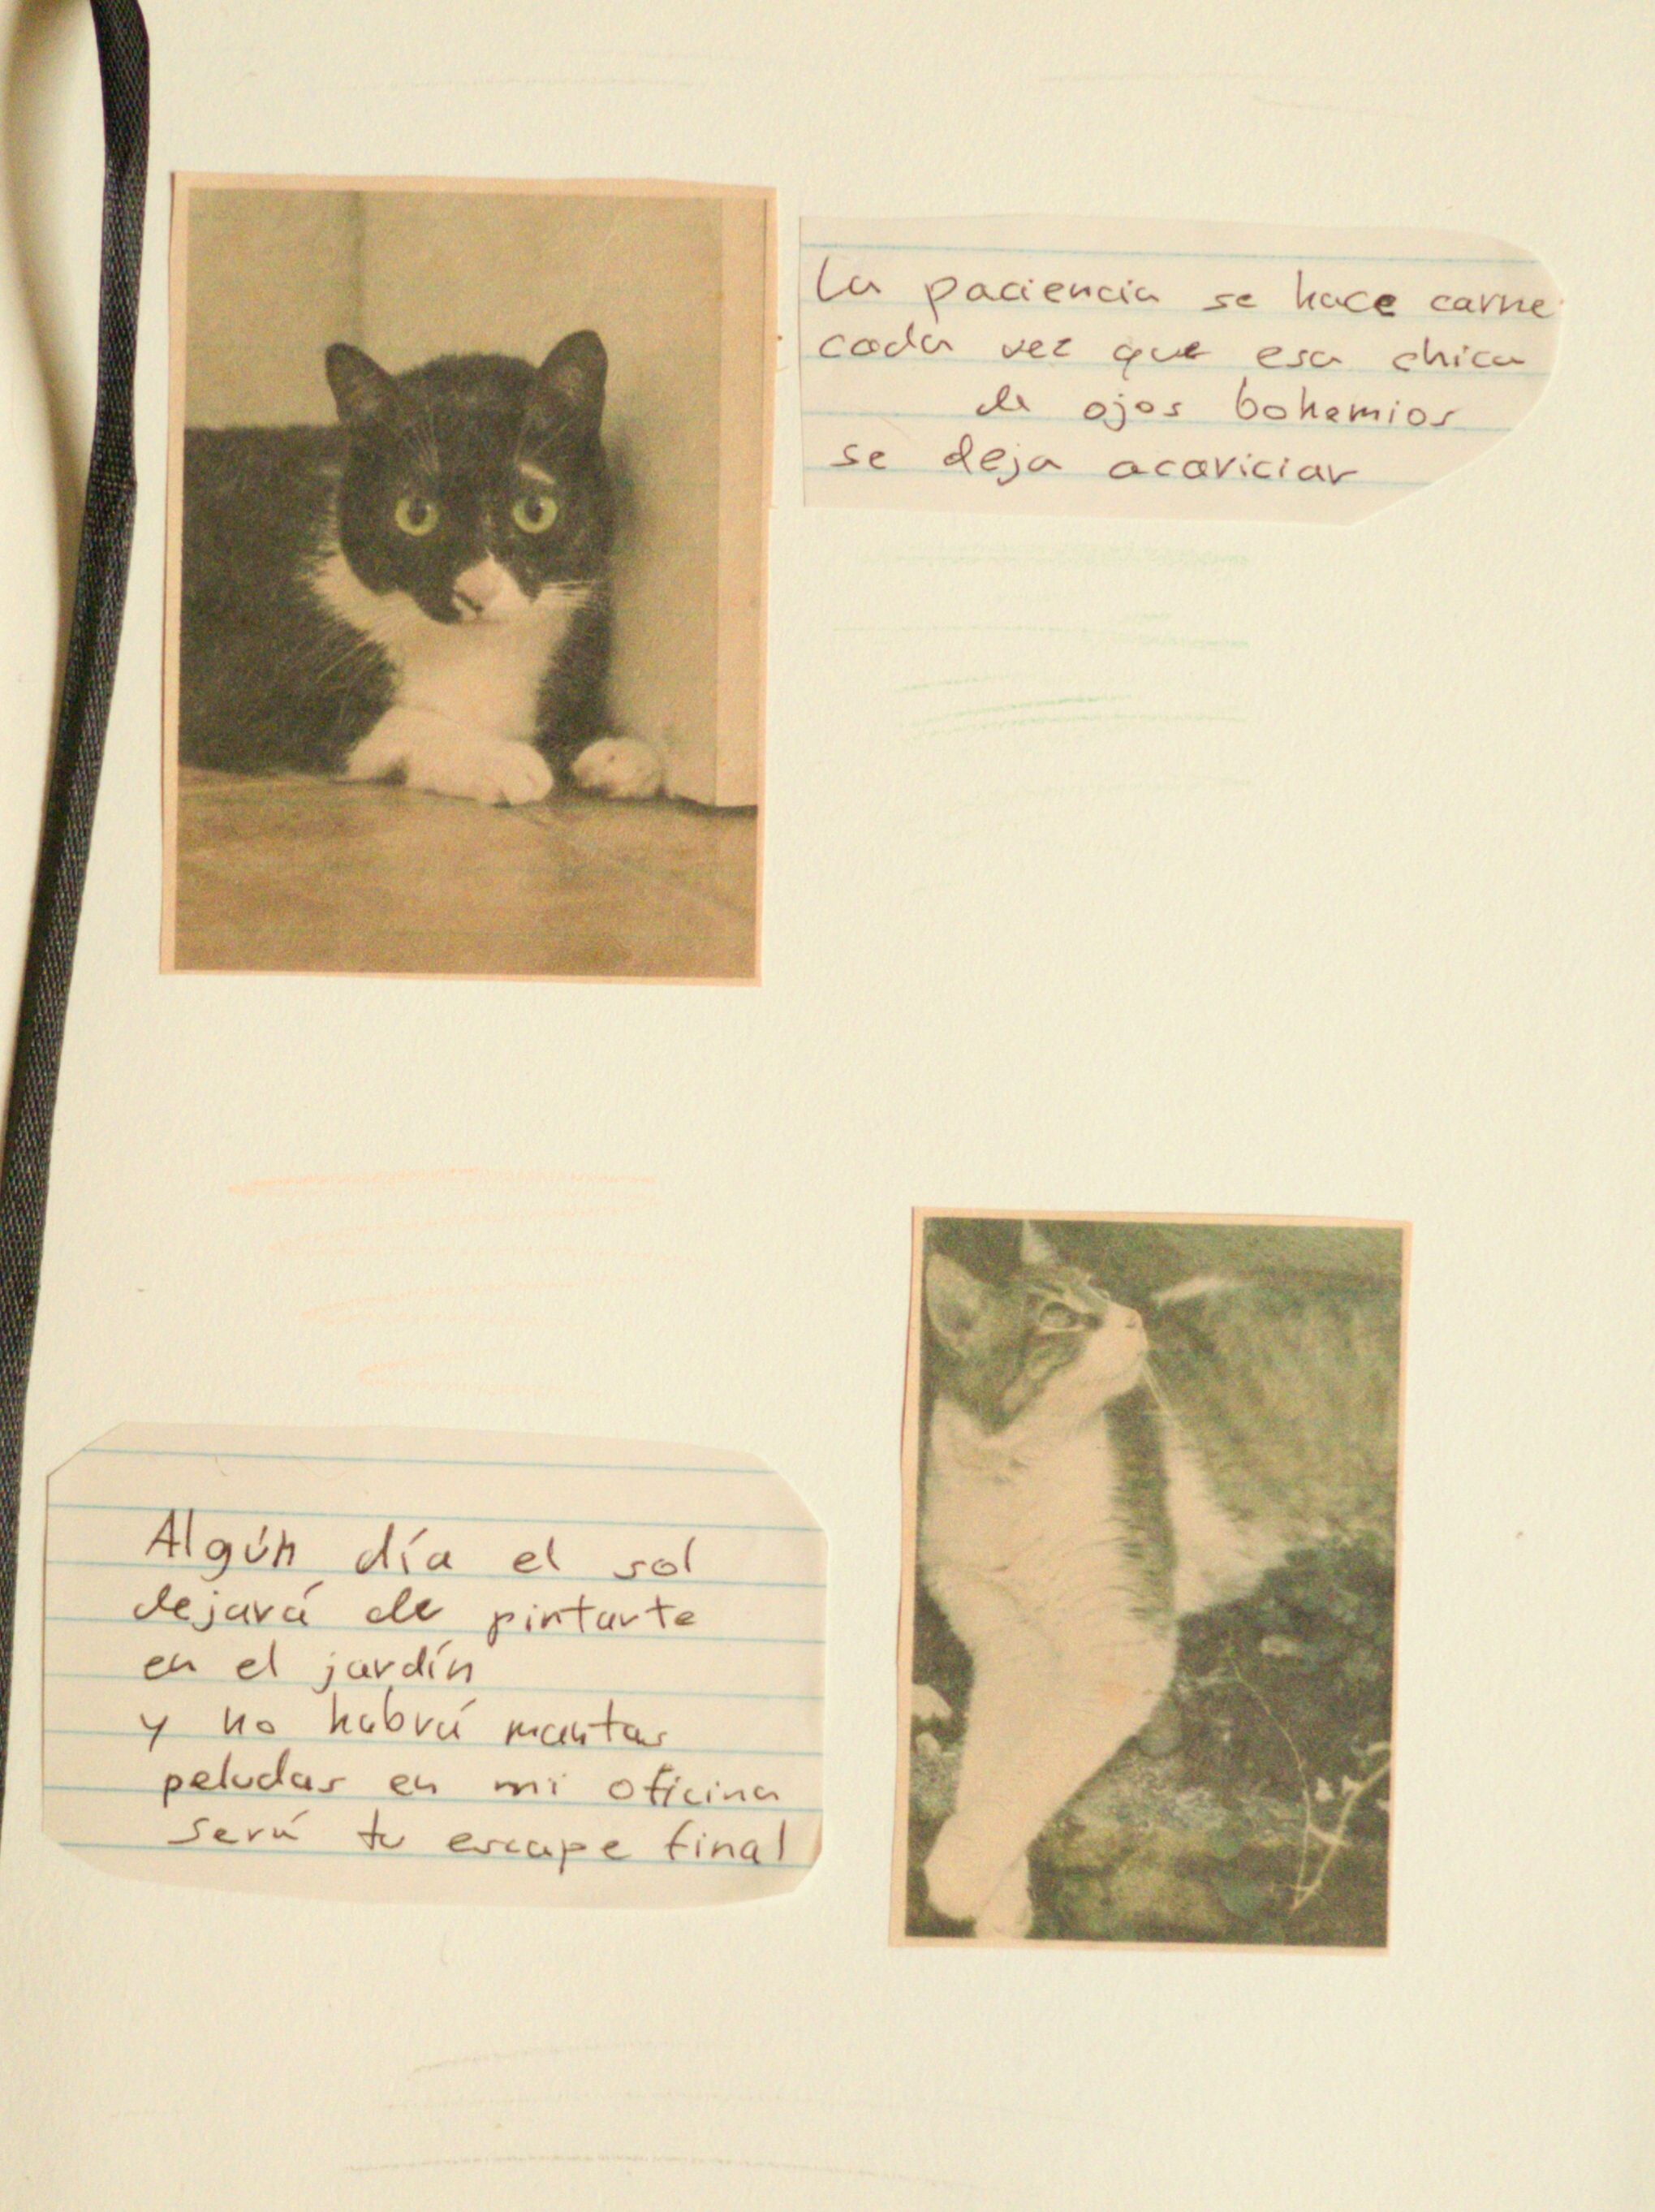 La paciencia se hace carne
cada vez que esa chica
de ojos bohemios
se deja acariciar
Algún día el sol
dejará de pintarte
en el jardín
y no habrá mantas
peludas en mi oficina
será tu escape final